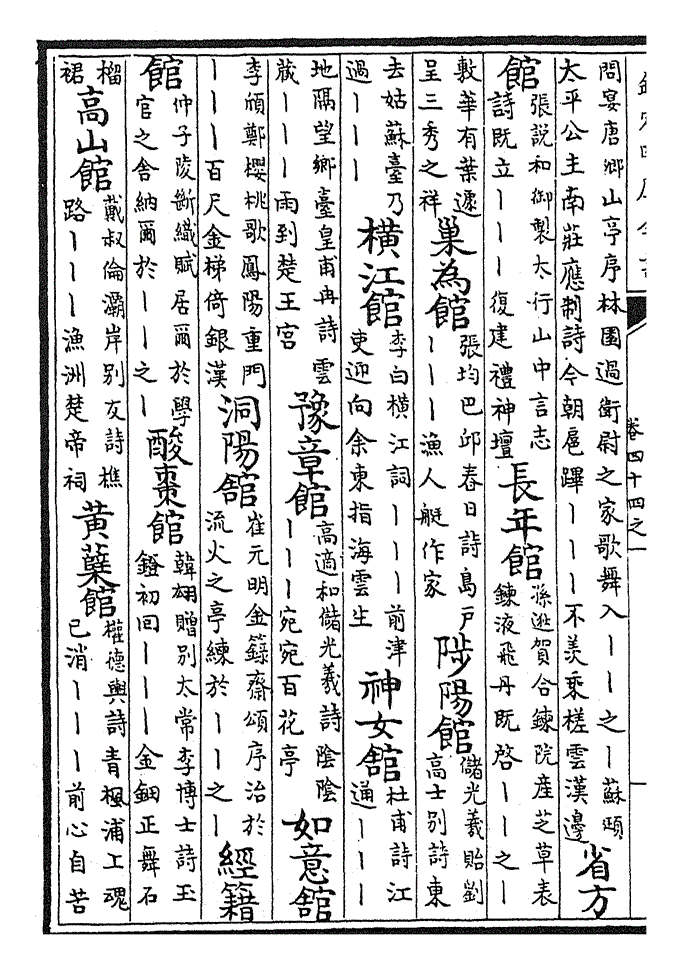 欽定四庫全書
卷四十四之一
問宴唐鄉山亭序林園過衛尉之家歌舞入丨丨之丨蘇頲
太平公主南莊應制詩今朝扈蹕丨丨丨不羨乘槎雲漢邊
省方
館
張説和御製太行山中言志
詩既立丨丨丨復建禮神壇
長年館
孫逖賀合鍊院産芝草表
鍊液飛丹既啓丨丨之丨
敷華有葉遽
呈三秀之祥
巢為館
張均巴邱春日詩島戶
丨丨丨漁人艇作家
陟陽館
儲光羲貽劉
高士別詩東
去姑蘇臺乃
過丨丨丨
橫江館
李白橫江詞丨丨丨前津
吏迎向余東指海雲生
神女館
杜甫詩江
通丨丨丨
地隔望鄉臺皇甫冉詩雲
藏丨丨丨雨到楚王宮
豫章館
高適和儲光羲詩陰陰
丨丨丨宛宛百花亭
如意館
李頎鄭櫻桃歌鳳陽重門
丨丨丨百尺金梯倚銀漢
洞陽館
崔元明金籙齋頌序治於
流火之亭練於丨丨之丨
經籍
館
仲子陵斷織賦居爾於學
官之舍納爾於丨丨之丨
酸棗館
韓翃贈別太常李博士詩玉
鐙初回丨丨丨金鈿正舞石
榴
裙
高山館
戴叔倫灞岸別友詩樵
路丨丨丨漁洲楚帝祠
黄蘗館
權德輿詩青楓浦上魂
已消丨丨丨前心自苦